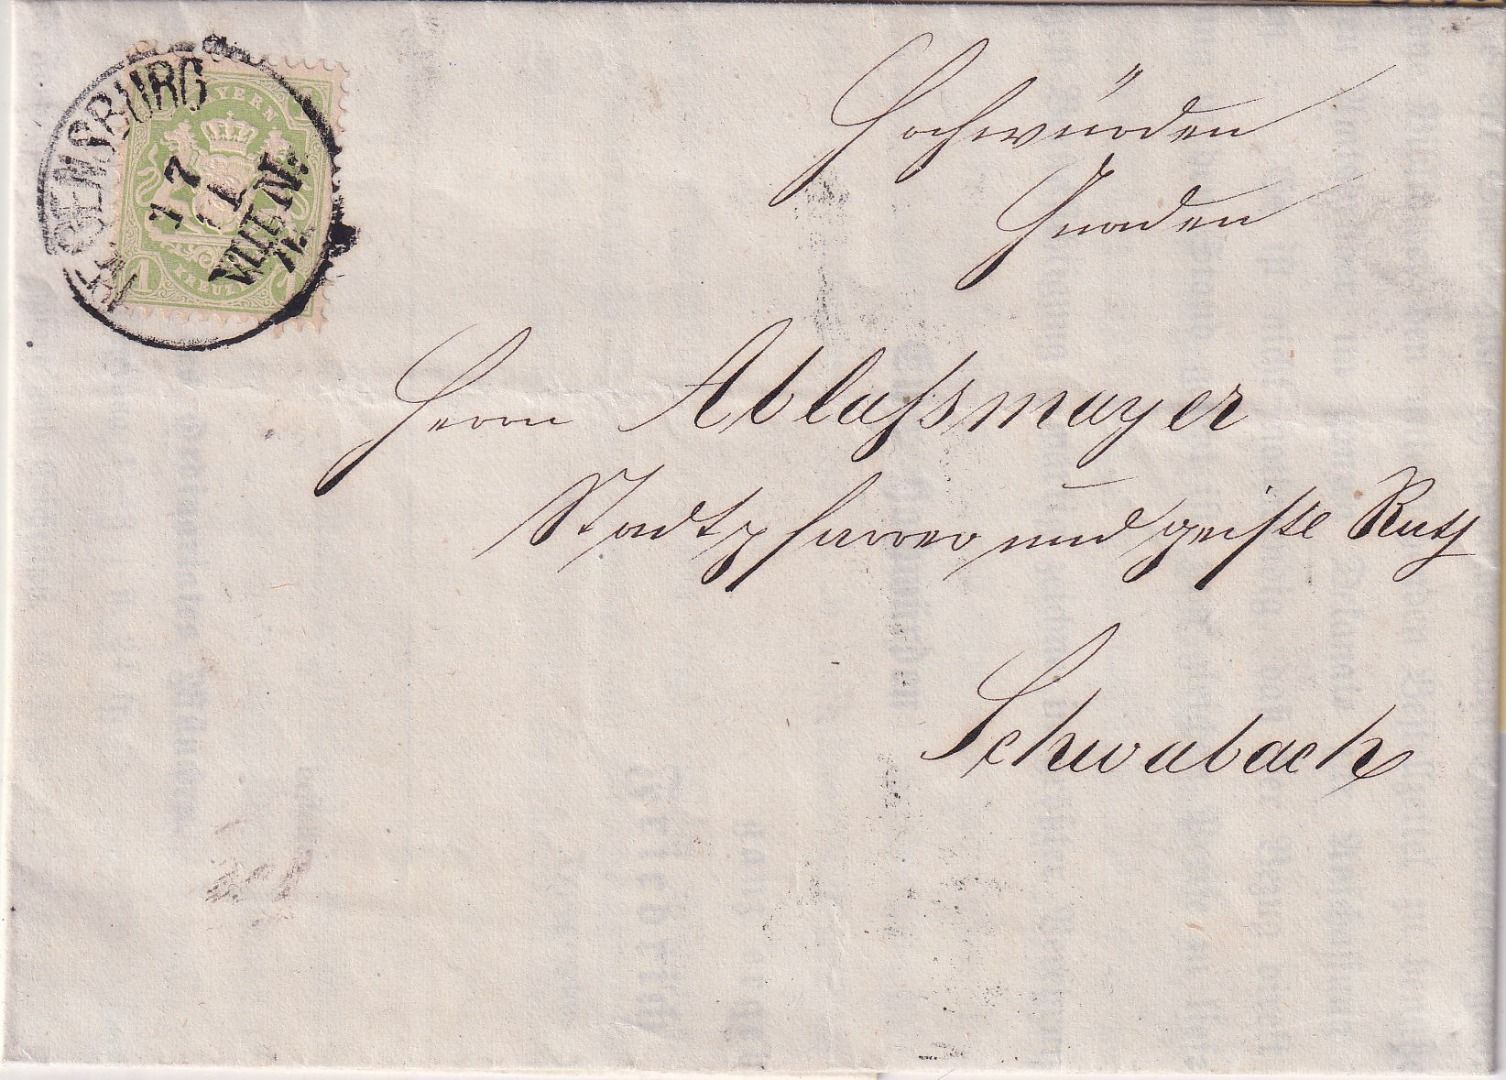 REGENSBURG
7 7
VIII-IX N.
BAYERN
1 KREUZER
Hochwürden
Gnaden
Herrn Ablassmayer
Stadtpfarrer und geistl Rath
Schwabach